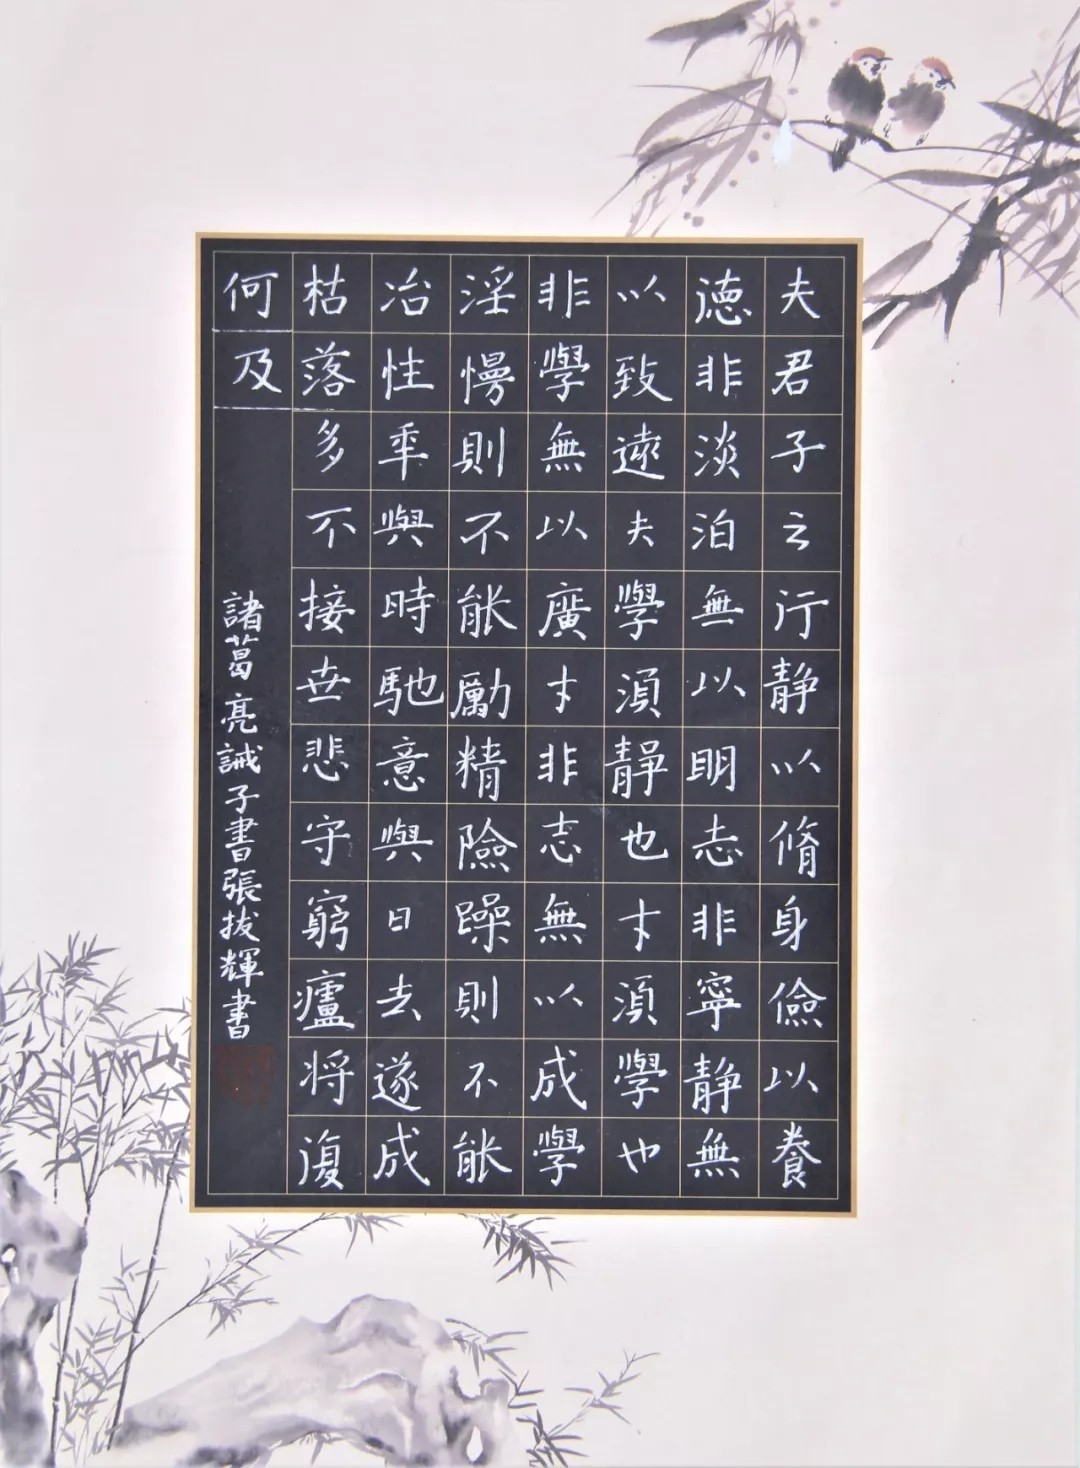 夫君子之行静以脩身儉以養
德非淡泊無以明志非寧静無
以致遠夫學須靜也才須學也
非學無以廣才非志無以成學
淫慢則不能勵精險躁則不能
冶性年與時馳意與日去遂成
枯落多不接世悲守窮廬将復
何及
諸葛亮誡子書張拔輝書